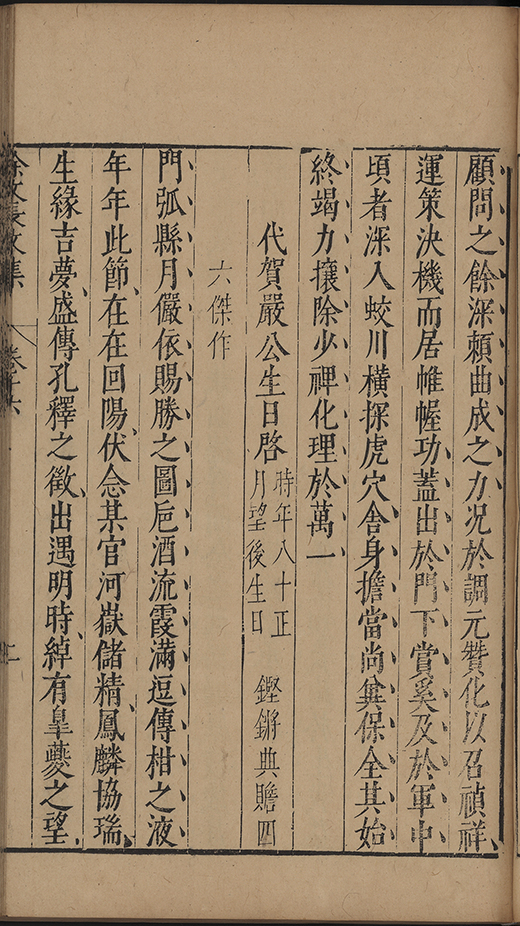 顧問之餘深頼曲成之力况於調元贊化以召禎祥
運策決機而居帷幄功蓋出於門下賞奚及於軍中
頃者深入蛟川橫探虎穴舍身擔當尚兾保全其始
終竭力攘除少禆化理於萬一
代賀嚴公生日啓
時年八十正
月望後生日
鏗鏘典贍四
六傑作
門弧縣月儼依賜勝之圖巵酒流霞滿逗傳柑之液
年年此節在在回陽伏念某官河嶽儲精鳳麟協瑞
生緣吉夢盛傳孔釋之徵出遇明時綽有臯夔之望
徐文長文集
卷十六
二